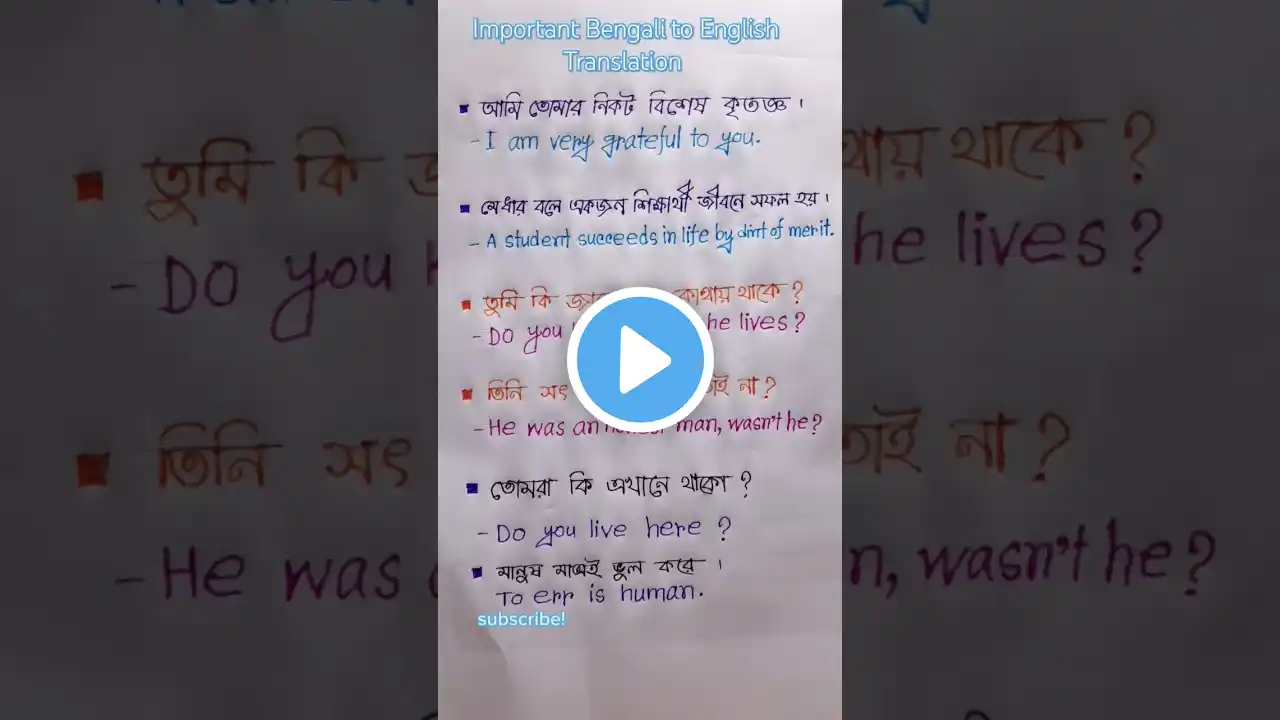 Important Bengali to English
Translation
আমি তোমার নিকট বিশেষ কৃতজ্ঞ ।
- I am very grateful to you.
মেধার বলে একজন শিক্ষার্থী জীবনে সফল হয় ।
- A student succeeds in life by dint of merit.
তুমি কি কোথায় থাকে ?
- Do you he lives ?
তিনি সৎ তাই না ?
- He was an man, wasn't he ?
তোমরা কি এখানে থাকো ?
- Do you live here ?
মানুষ মাত্রই ভুল করে ।
To err is human.
subscribe!